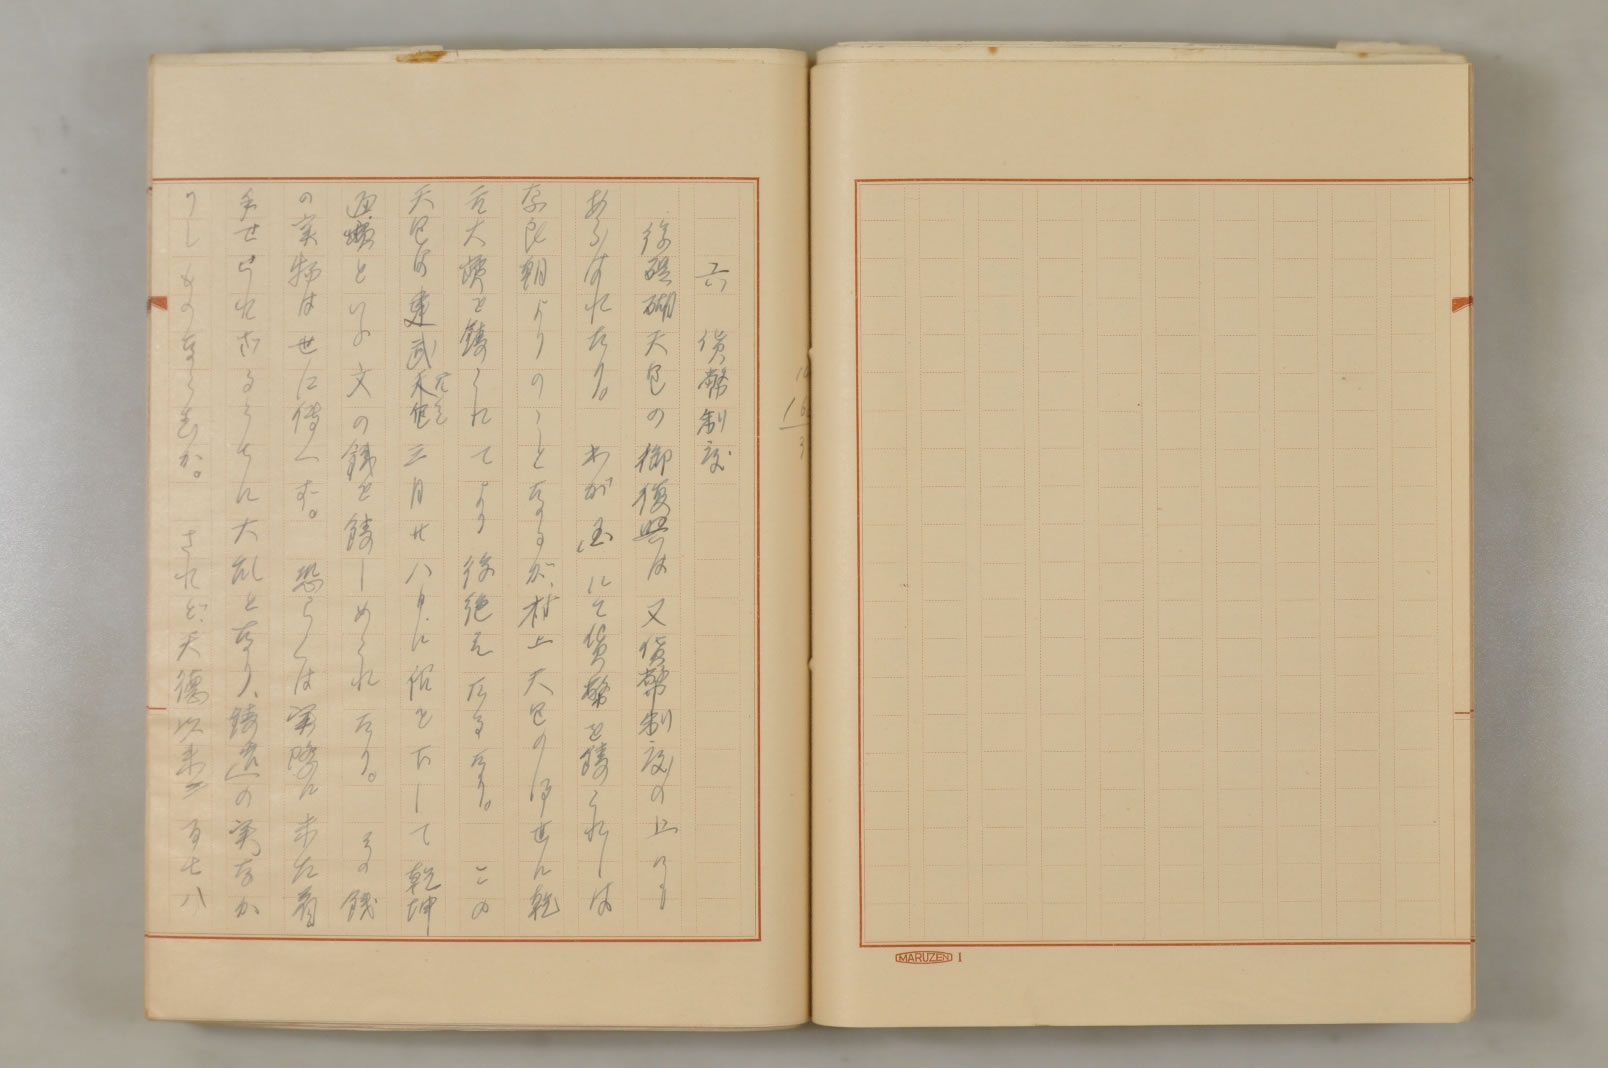 六 貨幣制度
後醍醐天皇の御復興は又貨幣制度の上にも
あらはれたり。 わが国にて貨幣を鋳られしは
奈良朝よりのことなるが、村上天皇の御世に乾
元大宝を鋳られてより後絶えたるなり。 この
天皇は建武元年三月廿八日に詔を下して乾坤
通宝といふ文の銭を鋳しめられたり。 その銭
の実物は世に伝へず。 恐らくは実際に未だ着
手せられざるうちに大乱となり、鋳造の実なか
りしものならむか。 されど、天徳以来三百七八
MARUZEN 1